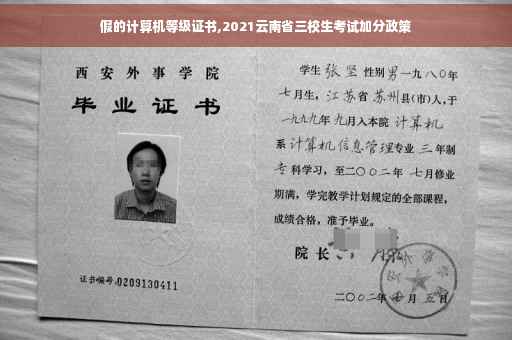 假的计算机等级证书,2021云南省三校生考试加分政策
西安外事学院
毕业证书
证书编号:0209130411
学生 张坚 性别 男 一九八〇年
七月生, 江苏省 苏州县(市)人,于
一九九九年 九月入本院 计算机
系 计算机信息管理专业 三 年制
专 科学习, 至二〇〇二年 七月修业
期满, 学完教学计划规定的全部课程,
成绩合格, 准予毕业。
院长
二〇〇二年 月 五 日